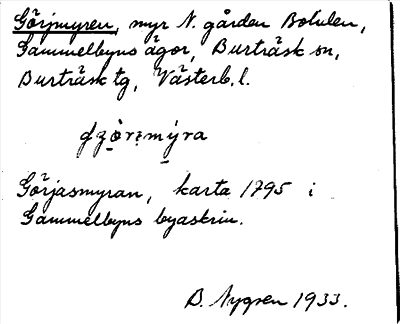 Görjmyren, myr N. gården Botulen,
Gammelbyns ägor, Burträsk sn,
Burträsk tg, Västerb. l.
Görjasmyran, karta 1795 i
Gammelbyns byaskrin.
D. Nygren 1933.